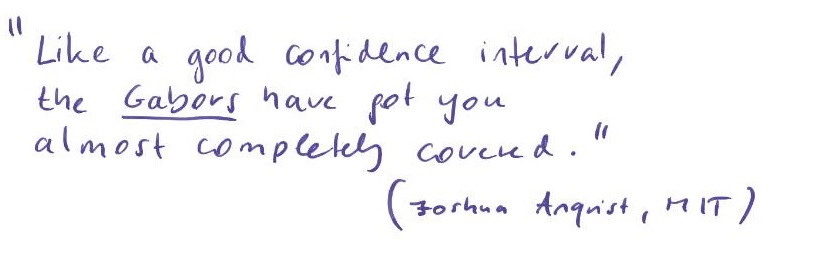 "Like a good confidence interval,
the Gabors have got you
almost completely covered."
(Joshua Angrist, MIT)